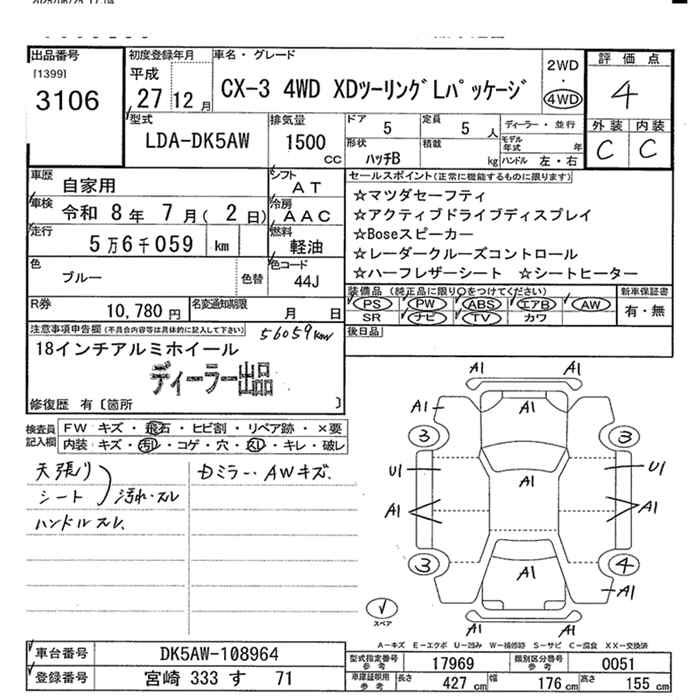 出品番号
[1399]
3106
初度登録年月
平成
27 12月
車名・グレード
CX-3 4WD XDツーリングLパッケージ
2WD
・
4WD
評価点
4
外装 内装
C C
型式
LDA-DK5AW
排気量
1500
CC
ドア 5
定員 5 人
形状
ハッチB
積載
kg
ディーラー・並行
モデル年式 年
ハンドル 左・右
車歴
自家用
シフト
AT
車検
令和 8年 7月( 2日)
冷房
AAC
走行
5万6千059 km
燃料
軽油
色
ブルー
色替
色コード
44J
R券
10,780円
名変通知期限
月 日
セールスポイント(正常に機能するものに限ります)
☆マツダセーフティ
☆アクティブドライブディスプレイ
☆Boseスピーカー
☆レーダークルーズコントロール
☆ハーフレザーシート ☆シートヒーター
装備品(純正品に限り○をつけてください)
PS PW ABS エアB AW
SR ナビ TV カワ
新車保証書
有・無
後日品
注意事項申告欄(不具合内容等は具体的に記入して下さい)
56059km
18インチアルミホイール
ディーラー出品
修復歴 有〔箇所 〕
検査員
記入欄
FW キズ・飛石・ヒビ割・リペア跡・×要
内装・キズ・汚レ・コゲ・穴・スレ・キレ・破レ
天張り
シート 汚れ・スレ
ハンドルスレ.
Dミラー・AWキズ.
A1
A1
A1
A1
A1
3
3
U1
U1
A1
A1
A1
3
4
A1
A1
A1
スペア
A－キズ E－エクボ U－凹み W－補修跡 S－サビ C－腐食 XX－交換済
車台番号
DK5AW-108964
登録番号
宮崎 333 す 71
型式指定番号
参考
17969
類別区分番号
参考
0051
車庫証明用
参考
長さ 427 cm
幅 176 cm
高さ 155 cm